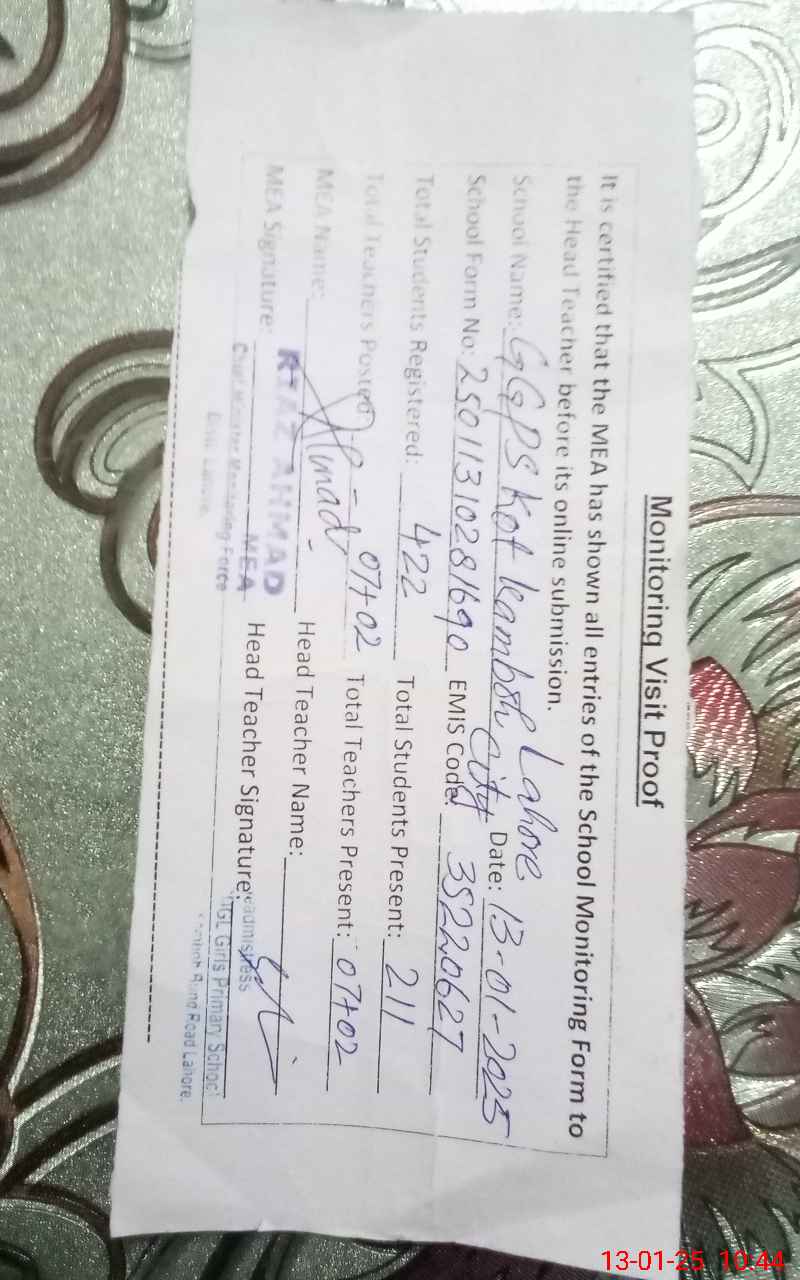 Monitoring Visit Proof
It is certified that the MEA has shown all entries of the School Monitoring Form to
the Head Teacher before its online submission.
School Name: GGPS Kot kamboh city Lahore Date: 13-01-2025
School Form No: 25011310281690 EMIS Code: 35220627
Total Students Registered: 422 Total Students Present: 211
Total Teachers Posted: 07+02 Total Teachers Present: 07+02
MEA Name: Head Teacher Name:
MEA Signature: Head Teacher Signature:
RIAZ AHMAD
MEA
Chief Minister Monitoring Force
Distt: Lahore
Headmistress
Girls Primary School
Bund Road Lahore.
13-01-25 10:44